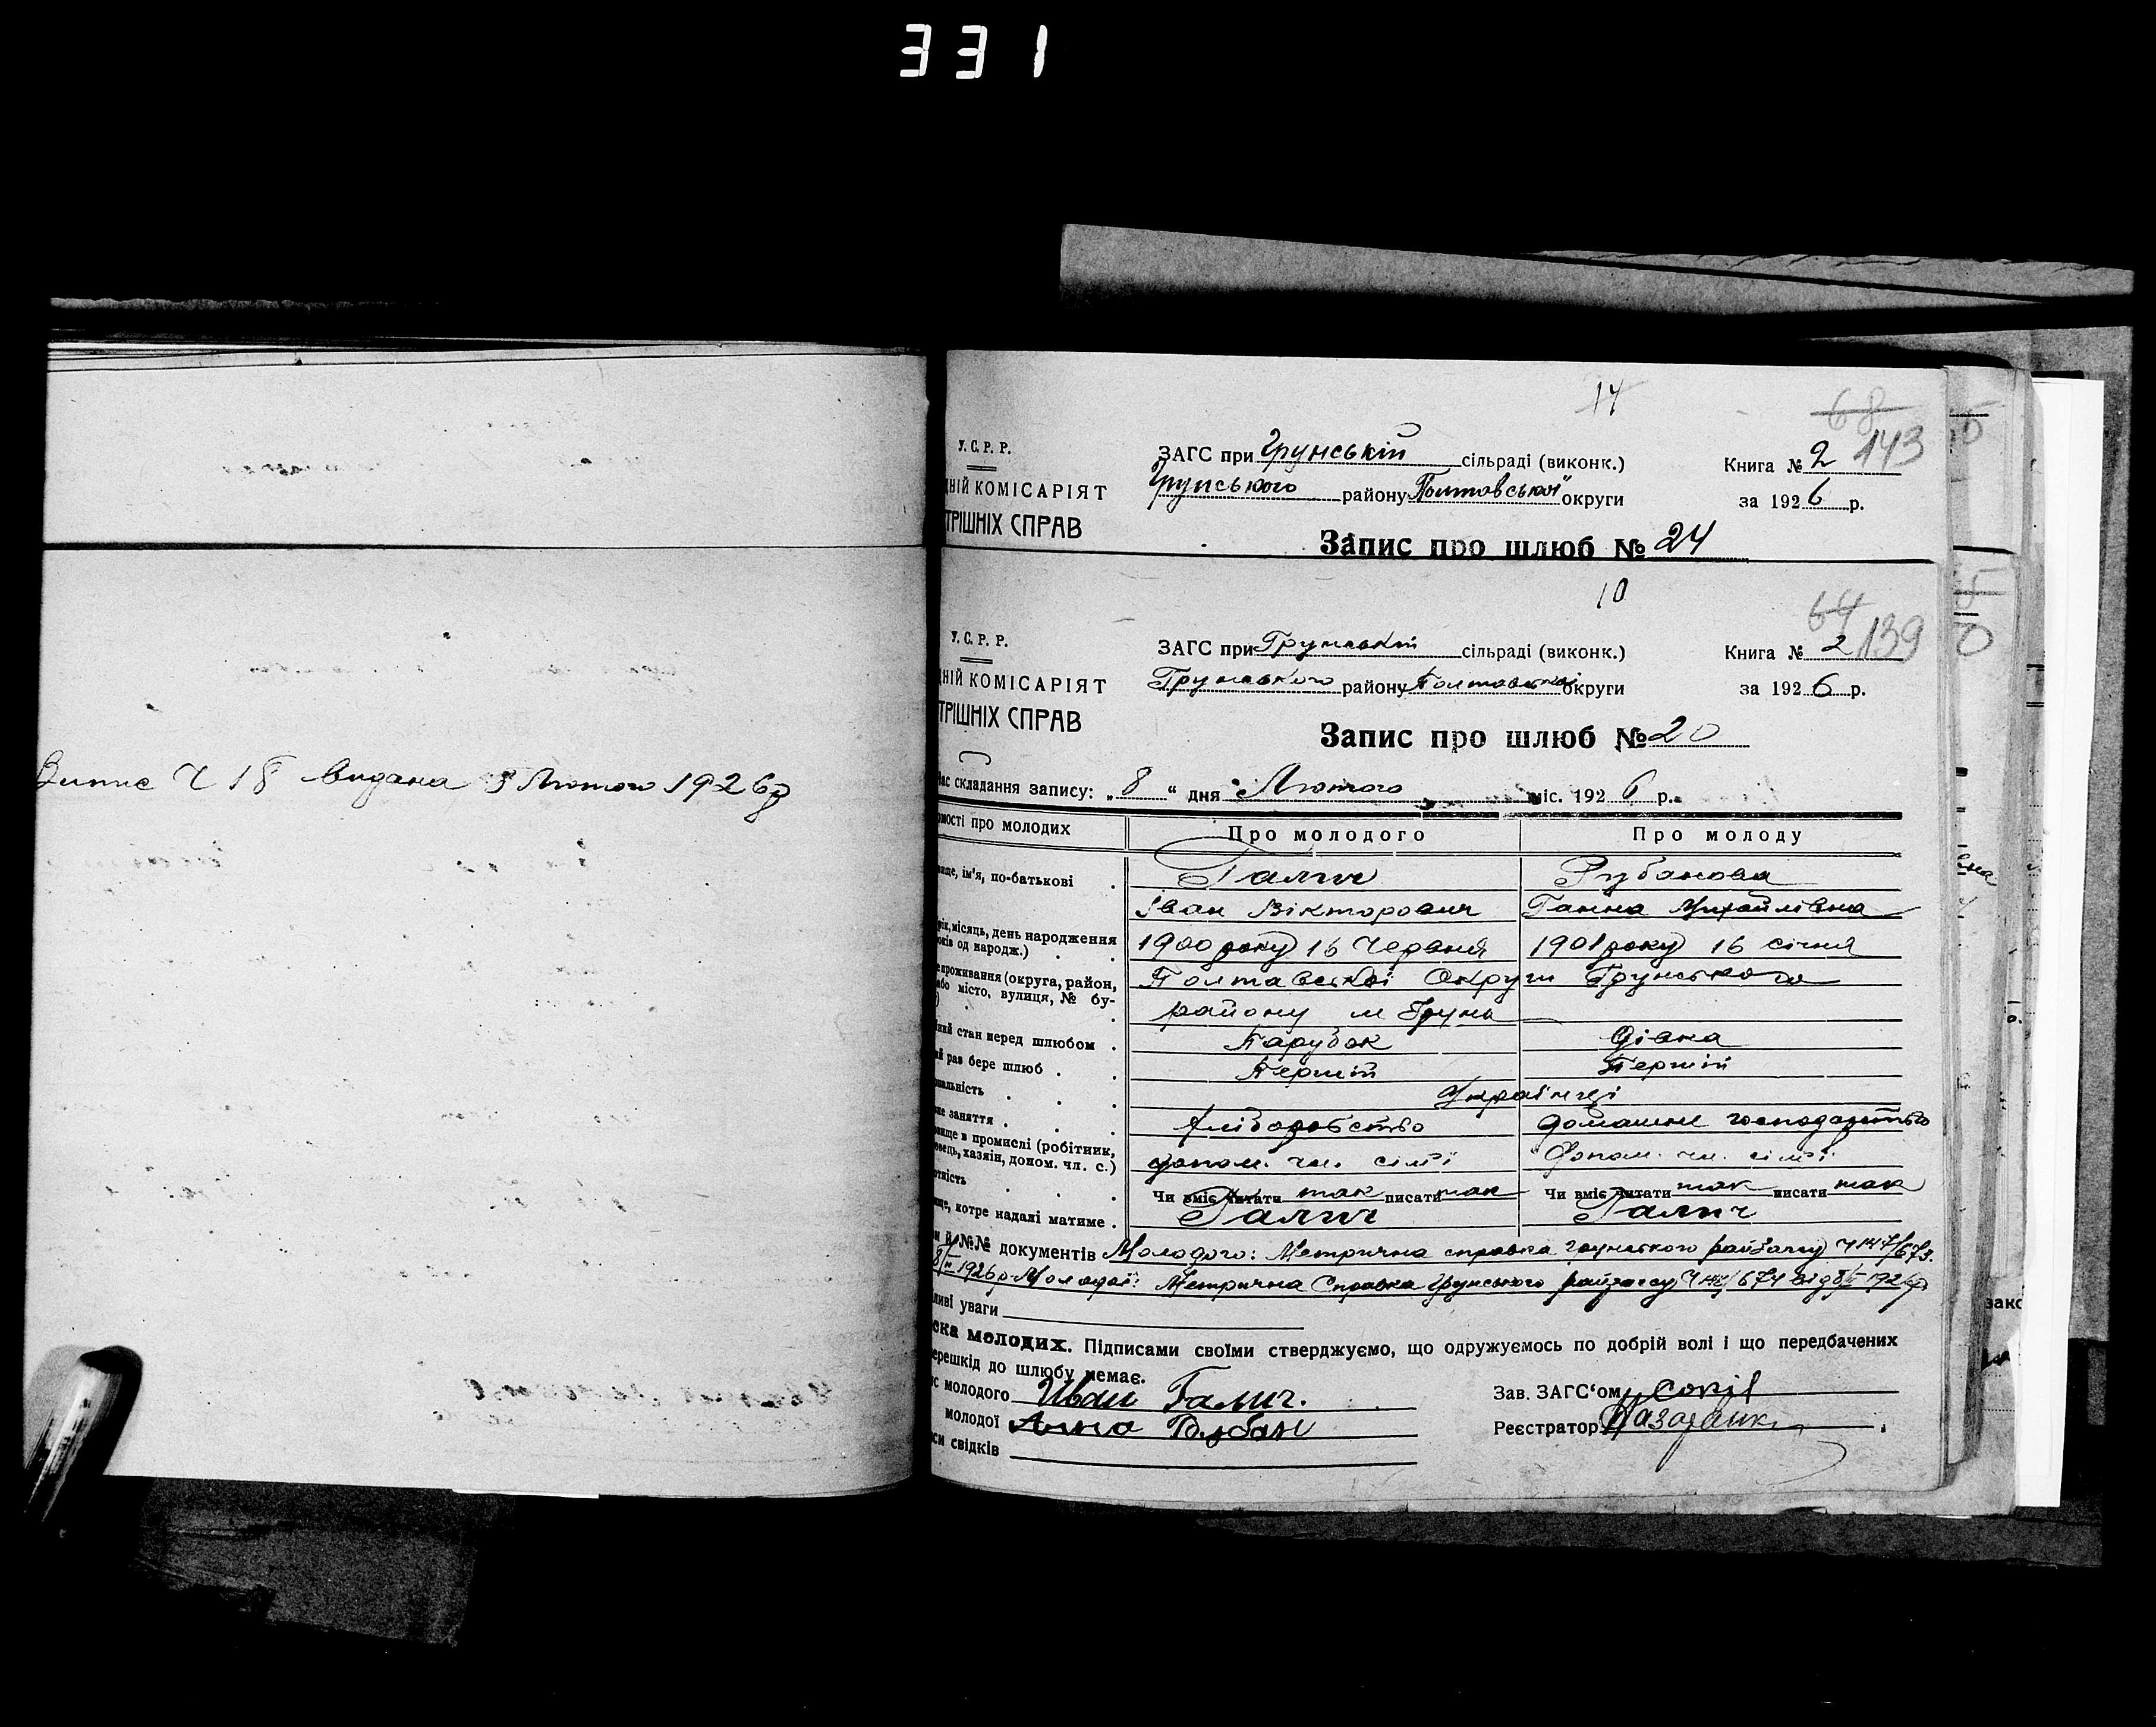 331
Випис Ч 18 видана 8 Лютого 1926 р
14
68
143
У.С.Р.Р.
ЗАГС при Грунській сільраді (виконк.)
Книга № 2
ДНІЙ КОМІСАРІЯТ
Грунського району Полтавської округи
за 1926 р.
ТРІШНІХ СПРАВ
Запис про шлюб № 24
10
64
139
У.С.Р.Р.
ЗАГС при Грунській сільраді (виконк.)
Книга № 2
ДНІЙ КОМІСАРІЯТ
Грунського району Полтавської округи
за 1926 р.
ТРІШНІХ СПРАВ
Запис про шлюб № 20
Час складання запису: „8“ дня Лютого міс. 1926 р.
омості про молодих
Про молодого
Про молоду
вище, ім'я, по-батькові
Галич
Рубанова
Іван Вікторович
Ганна Михайлівна
рік, місяць, день народження
ків од народж.)
1900 року 16 Червня
1901 року 16 січня
е проживання (округа, район,
або місто, вулиця, № бу-
Полтавської Округи Грунського
району м Грунь
ний стан перед шлюбом
Парубок
Дівка
ий раз бере шлюб
Перший
Перший
ональність
Українці
не заняття
Хліборобство
домашнє господарство
вище в промислі (робітник,
овець, хазяїн, допом. чл. с.)
допом. чл. сім'ї
Допом. чл. сім'ї
отність
Чи вміє читати так писати так
Чи вміє читати так писати так
ще, котре надалі матиме
Галич
Галич
и й №№ документів Молодого: Метрична справка Грунського райзагсу Ч 147/673
8/II 1926 р Молодої: Метрична Справка Грунського райзагсу Ч /674 від 8/II 1926 р
ливі уваги
ска молодих. Підписами своїми стверджуємо, що одружуємось по добрій волі і що передбачених
ерешкід до шлюбу немає.
с молодого Иван Галич.
Зав. ЗАГС'ом
молодої Анна Рубан
Реєстратор
си свідків